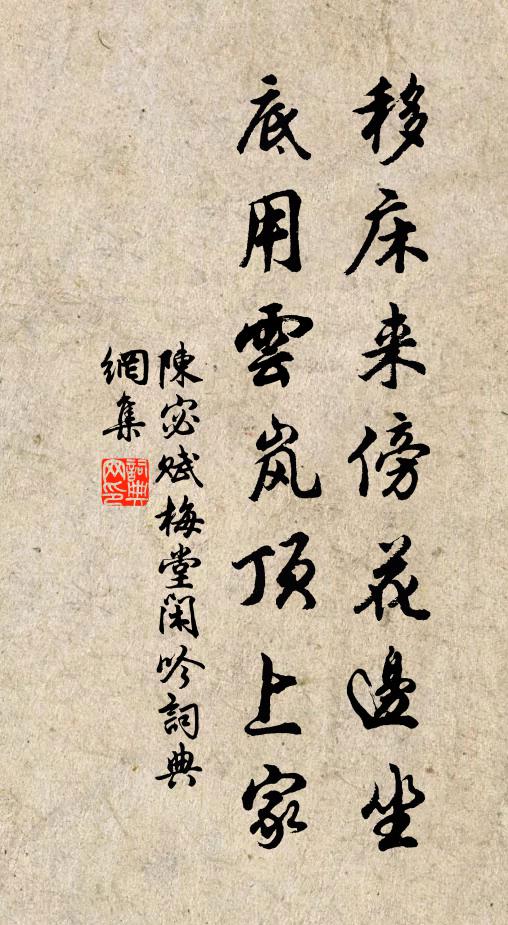 移床来傍花邊坐
底用雲岚顶上家
陳宓赋梅堂閑吟詞典
網集
詞典
网印